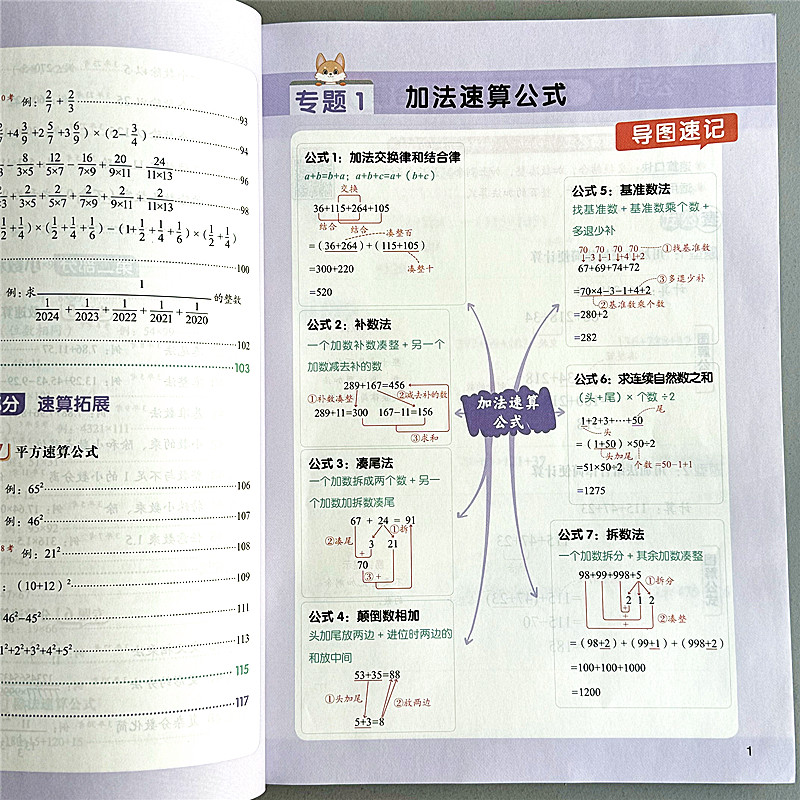 0考 例：2/7 + 2/3 93
2/7+4 3/9+2 5/7+3 6/9）×（2- 3/4） 94
- 8/3×5 + 12/5×7 - 16/7×9 + 20/9×11 - 24/11×13 96
2/3×5 + 2/5×7 + 2/7×9 + 2/9×11 + 2/11×13 98
1/2+1/4）×（1/2+1/4+1/6）-（1+1/2+1/4+1/6）×（1/2+1/4）
100
例：求 1/(1/2024+1/2023+1/2022+1/2021+1/2020) 的整数
102
103
分 速算拓展
平方速算公式
例：65² 106
例：46² 107
8考 例：21² 108
：（10+12）² 109
46²-45² 111
1²+2²+3²+4²+5² 113
115
117
专题1 加法速算公式
导图速记
公式1：加法交换律和结合律
a+b=b+a；a+b+c=a+（b+c）
交换
36+115+264+105
结合 结合 凑整百
=（36+264）+（115+105）
=300+220 凑整十
=520
公式2：补数法
一个加数补数凑整+另一个
加数减去补的数
289+167=456
①补数凑整 ②减去补的数
289+11=300 167-11=156
③求和
公式3：凑尾法
一个加数拆成两个数+另一
个加数加拆数凑尾
67 + 24 = 91
①拆
②凑尾 3 21
+
70
③ +
公式4：颠倒数相加
头加尾放两边+进位时两边的
和放中间
53+35=88
①头加尾 ②放两边
5+3=8
加法速算
公式
公式5：基准数法
找基准数+基准数乘个数+
多退少补
70 70 70 70 ①找基准数
-3 -1 +4 +2
67+69+74+72
③多退少补
=70×4-3-1+4+2
②基准数乘个数
=280+2
=282
公式6：求连续自然数之和
（头+尾）×个数÷2
尾
1+2+3+…+50
头
=（1+50）×50÷2
头加尾
=51×50÷2 个数=50-1+1
=1275
公式7：拆数法
一个加数拆分+其余加数凑整
98+99+998+5
①拆分
2 1 2
+
+
+ ②凑整
=（98+2）+（99+1）+（998+2）
=100+100+1000
=1200
1